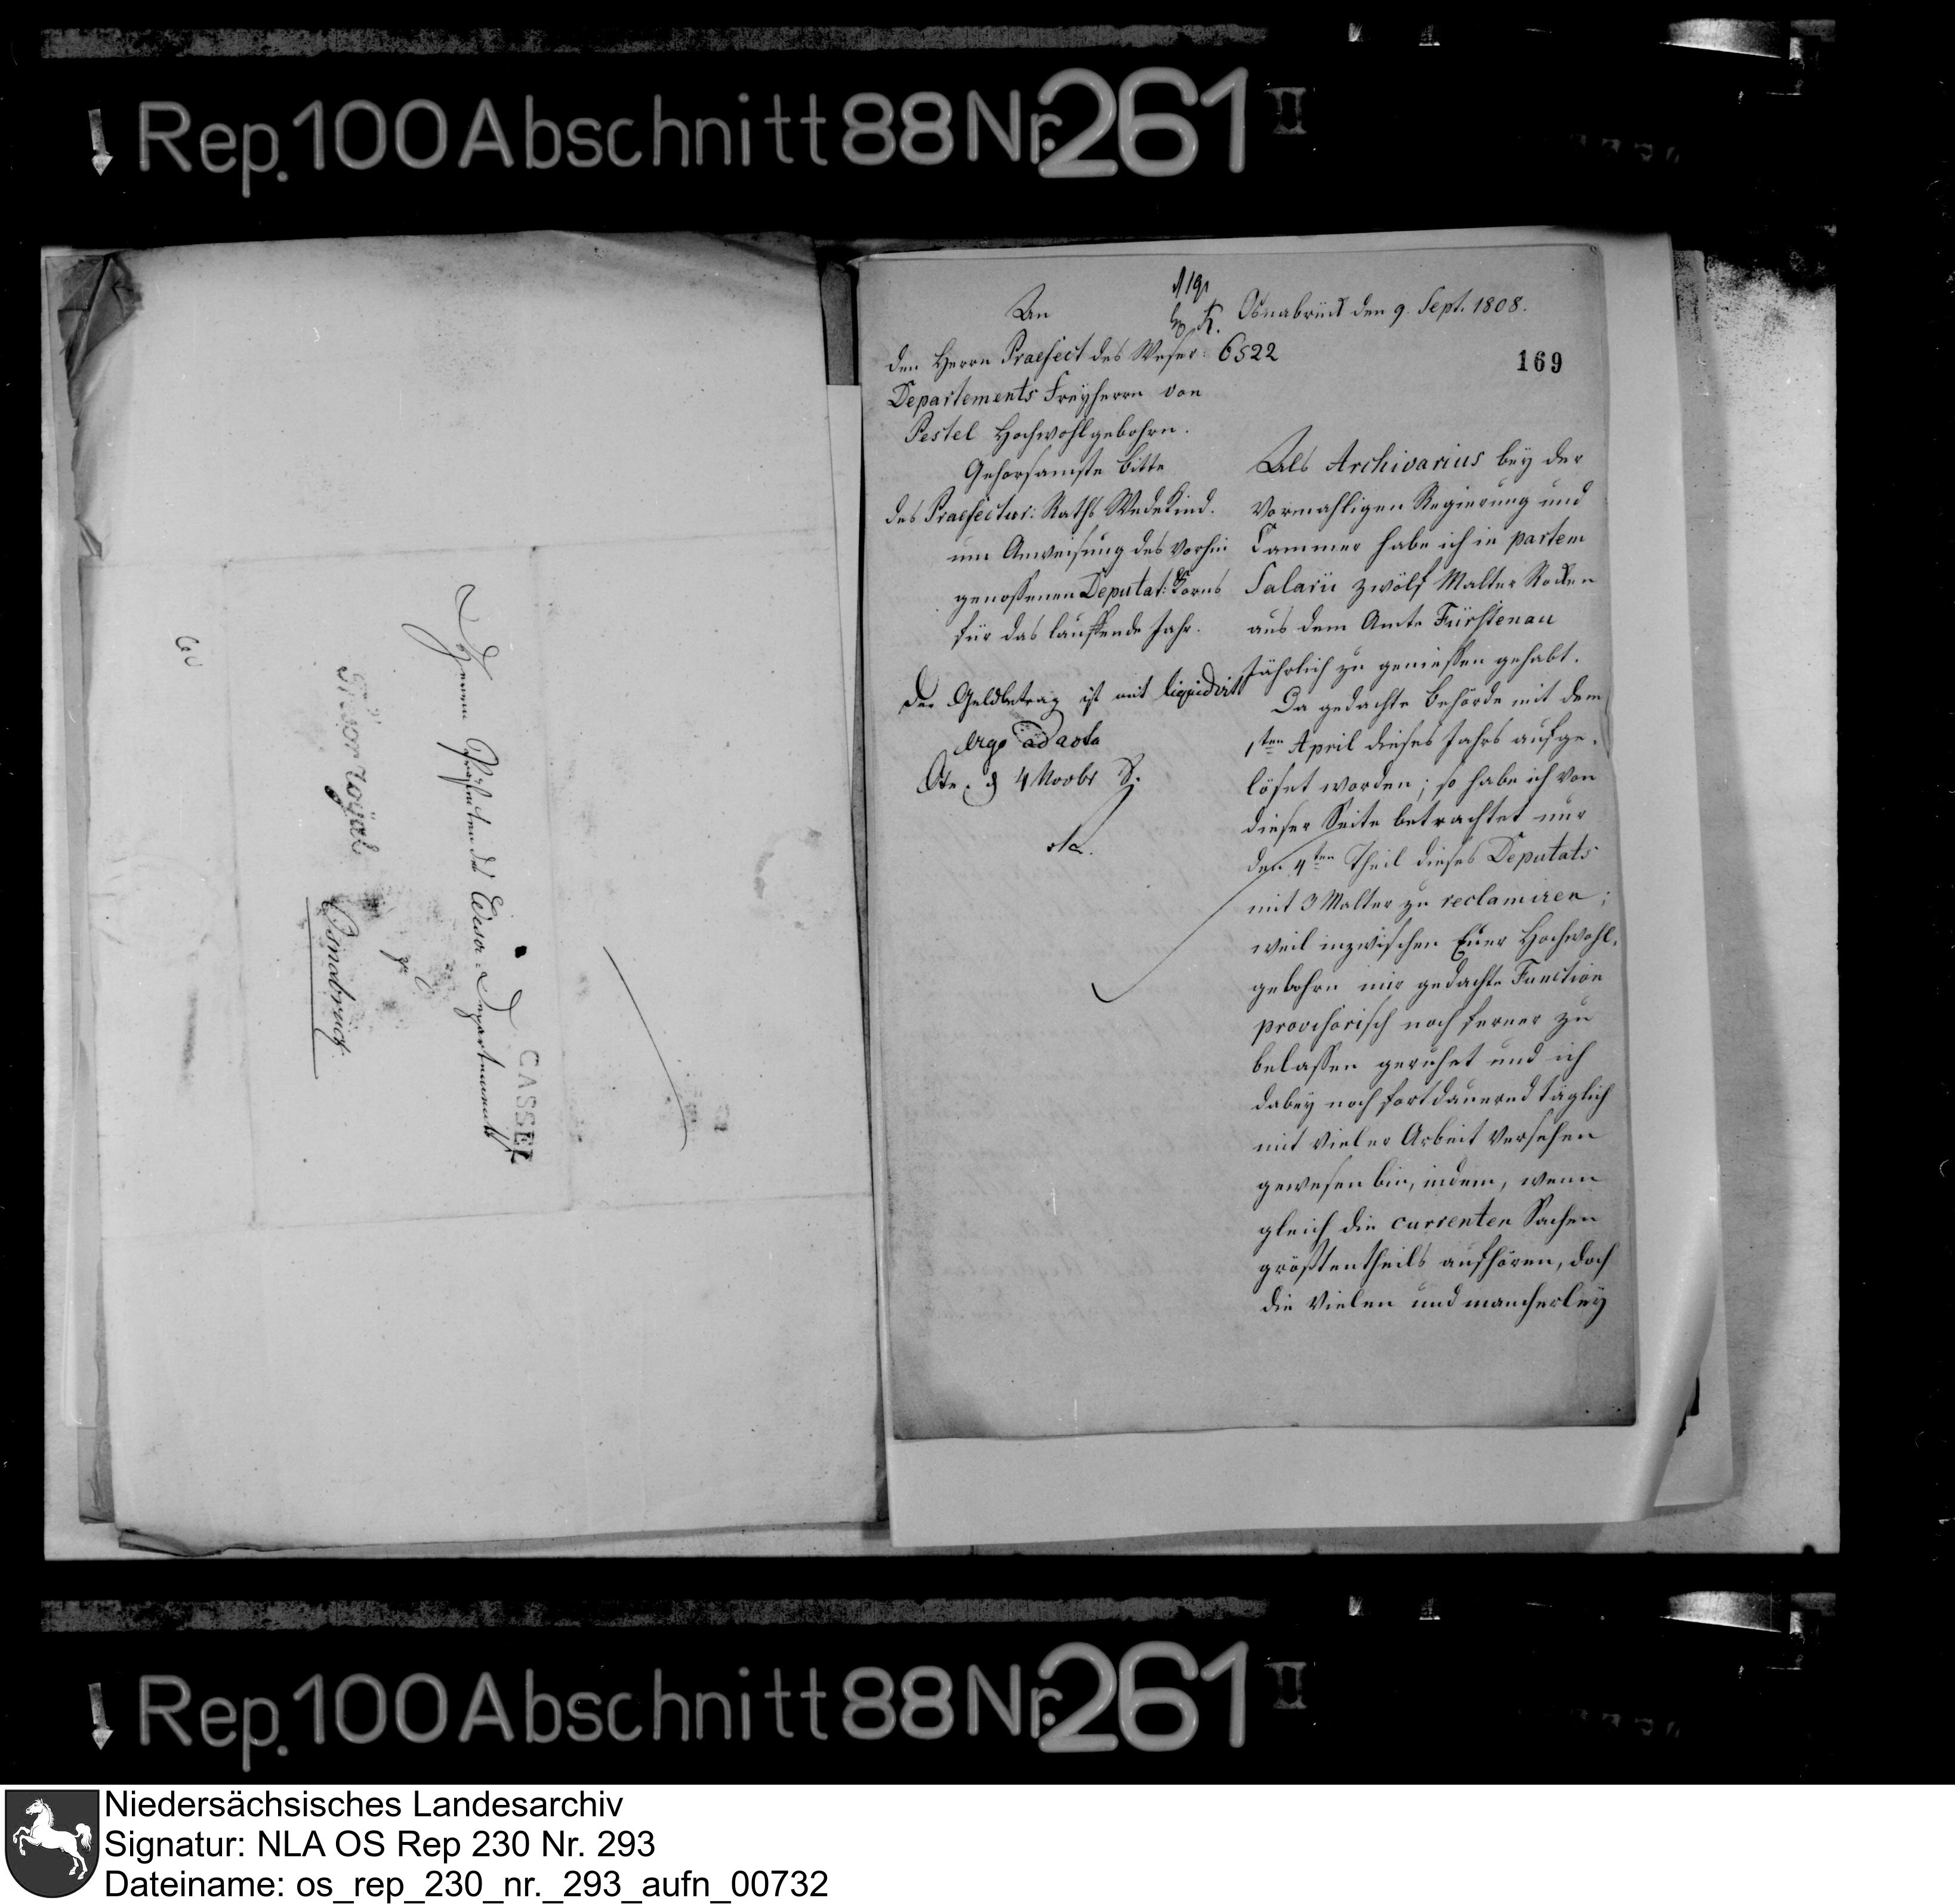 Rep. 100 Abschnitt 88 Nr. 261 II
Herrn Präfecten des Weser-Departements
Osnabrück
CASSEL
An
den Herrn Praefect des Weser-
Departements Freyherrn von
Pestel Hochwohlgebohrn.
Gehorsamste Bitte
des Praefectur: Raths Wedekind.
um Anweisung des vorhin
genoßenen Deputat: Korns
für das lauffende Jahr.
Der Geldbetrag ist mit liquidirt
ergo ad acta
Osn. d 4 Novbr
Osnabrück den 9. Sept. 1808.
6522
169
Als Archivarius bey der
vormahligen Regierung und
Cammer habe ich in partem
Salarii zwölf Malter Rocken
aus dem Amte Fürstenau
jährlich zu geniessen gehabt.
Da gedachte Behörde mit dem
1ten April dieses Jahrs aufge-
löset worden; so habe ich von
dieser Seite betrachtet nur
den 4ten Theil dieses Deputats
mit 3 Malter zu reclamiren;
weil inzwischen Euer Hochwohl-
gebohrn mir gedachte Function
provisorisch noch ferner zu
belassen geruhet und ich
dabey noch fortdauernd täglich
mit vieler Arbeit versehen
gewesen bin, indem, wenn
gleich die currenten Sachen
größtentheils aufhören, doch
die vielen und mancherley
Rep. 100 Abschnitt 88 Nr. 261 II
Niedersächsisches Landesarchiv
Signatur: NLA OS Rep 230 Nr. 293
Dateiname: os_rep_230_nr._293_aufn_00732